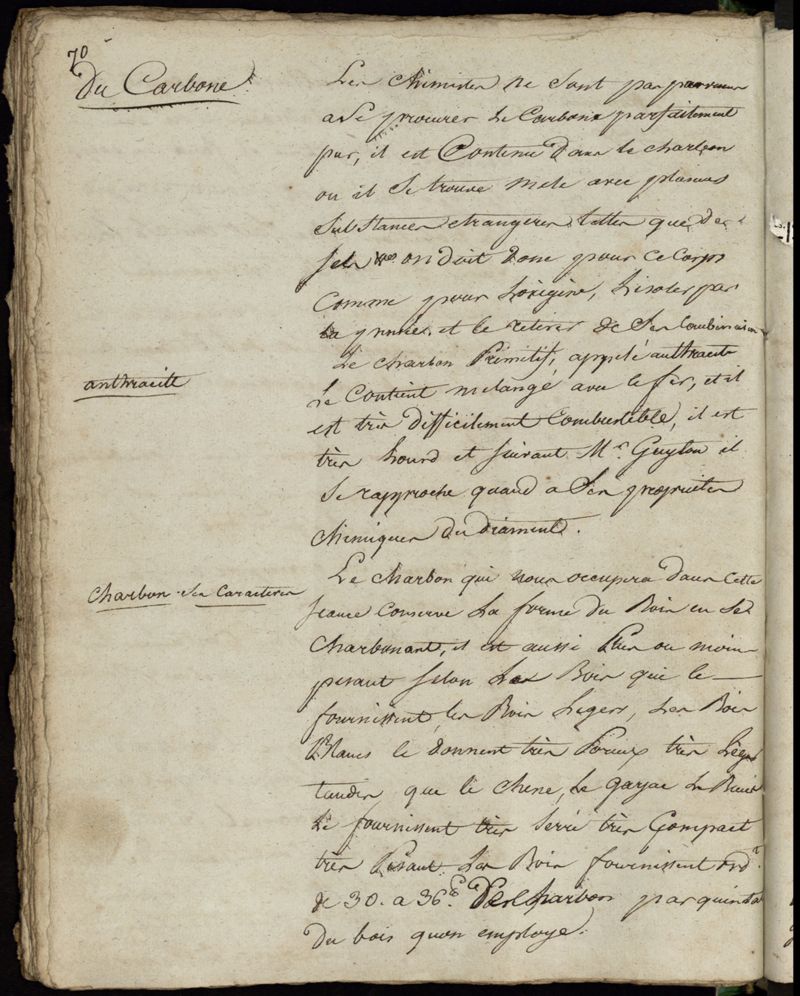 70
Du Carbone
Les Chimistes ne sont pas parvenus
a se procurer le Carbone parfaitement
pur, il est Contenu dans le charbon
ou il se trouve mele avec plusieurs
substances etrangeres telles que des
sels on doit donc pour ce Corps
Comme pour l'oxigène, l'isoler par
la pensée et le retirer de ses Combinaisons
Le charbon Primitif, appelé anthracite
anthracite
le Contient melangé avec le fer, et il
est très difficilement Combustible, il est
très lourd et suivant Mr. Guyton il
se rapproche quand a ses proprietes
chimiques du diament.
Le charbon qui nous occupera dans cette
Charbon ses Caracteres
seance Conserve la forme du Bois en se
Charbonant, il est aussi Plus ou moins
pesant selon les Bois qui le
fournissent, les Bois Legers, les Bois
Blancs le donnent très Poreux très Lèger
tandis que le chene, le gayac le Buis
le fournissent très serré très Compact
très Pesant. Les Bois fournissent ord.t
de 30. a 36 de Charbon par quintal
Du bois quon employe.